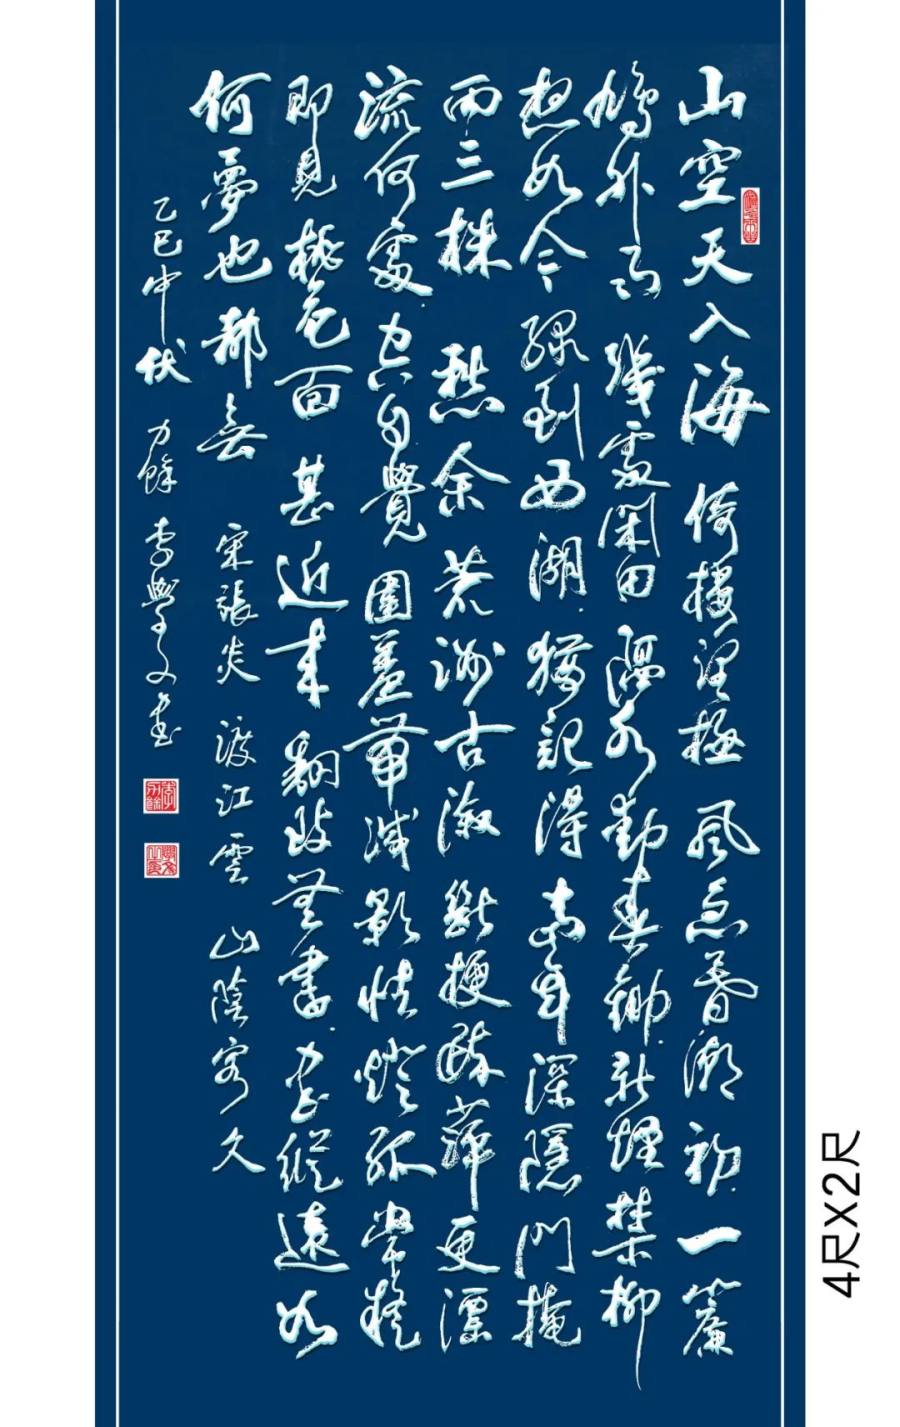 山空天入海倚樓望極風急暮潮初一簾
鳩外雨幾處閑田隔水動春鋤新煙禁柳
想如今綠到西湖猶記得當年深隱門掩
兩三株愁余荒洲古溆斷梗疏萍更漂
流何處空自覺圍羞帶減影怯燈孤常疑
即見桃花面甚近来翻致無書書縱遠如
何夢也都無 宋張炎 渡江雲 山陰客久
乙巳中伏 力餘 李學文書
4尺X2尺